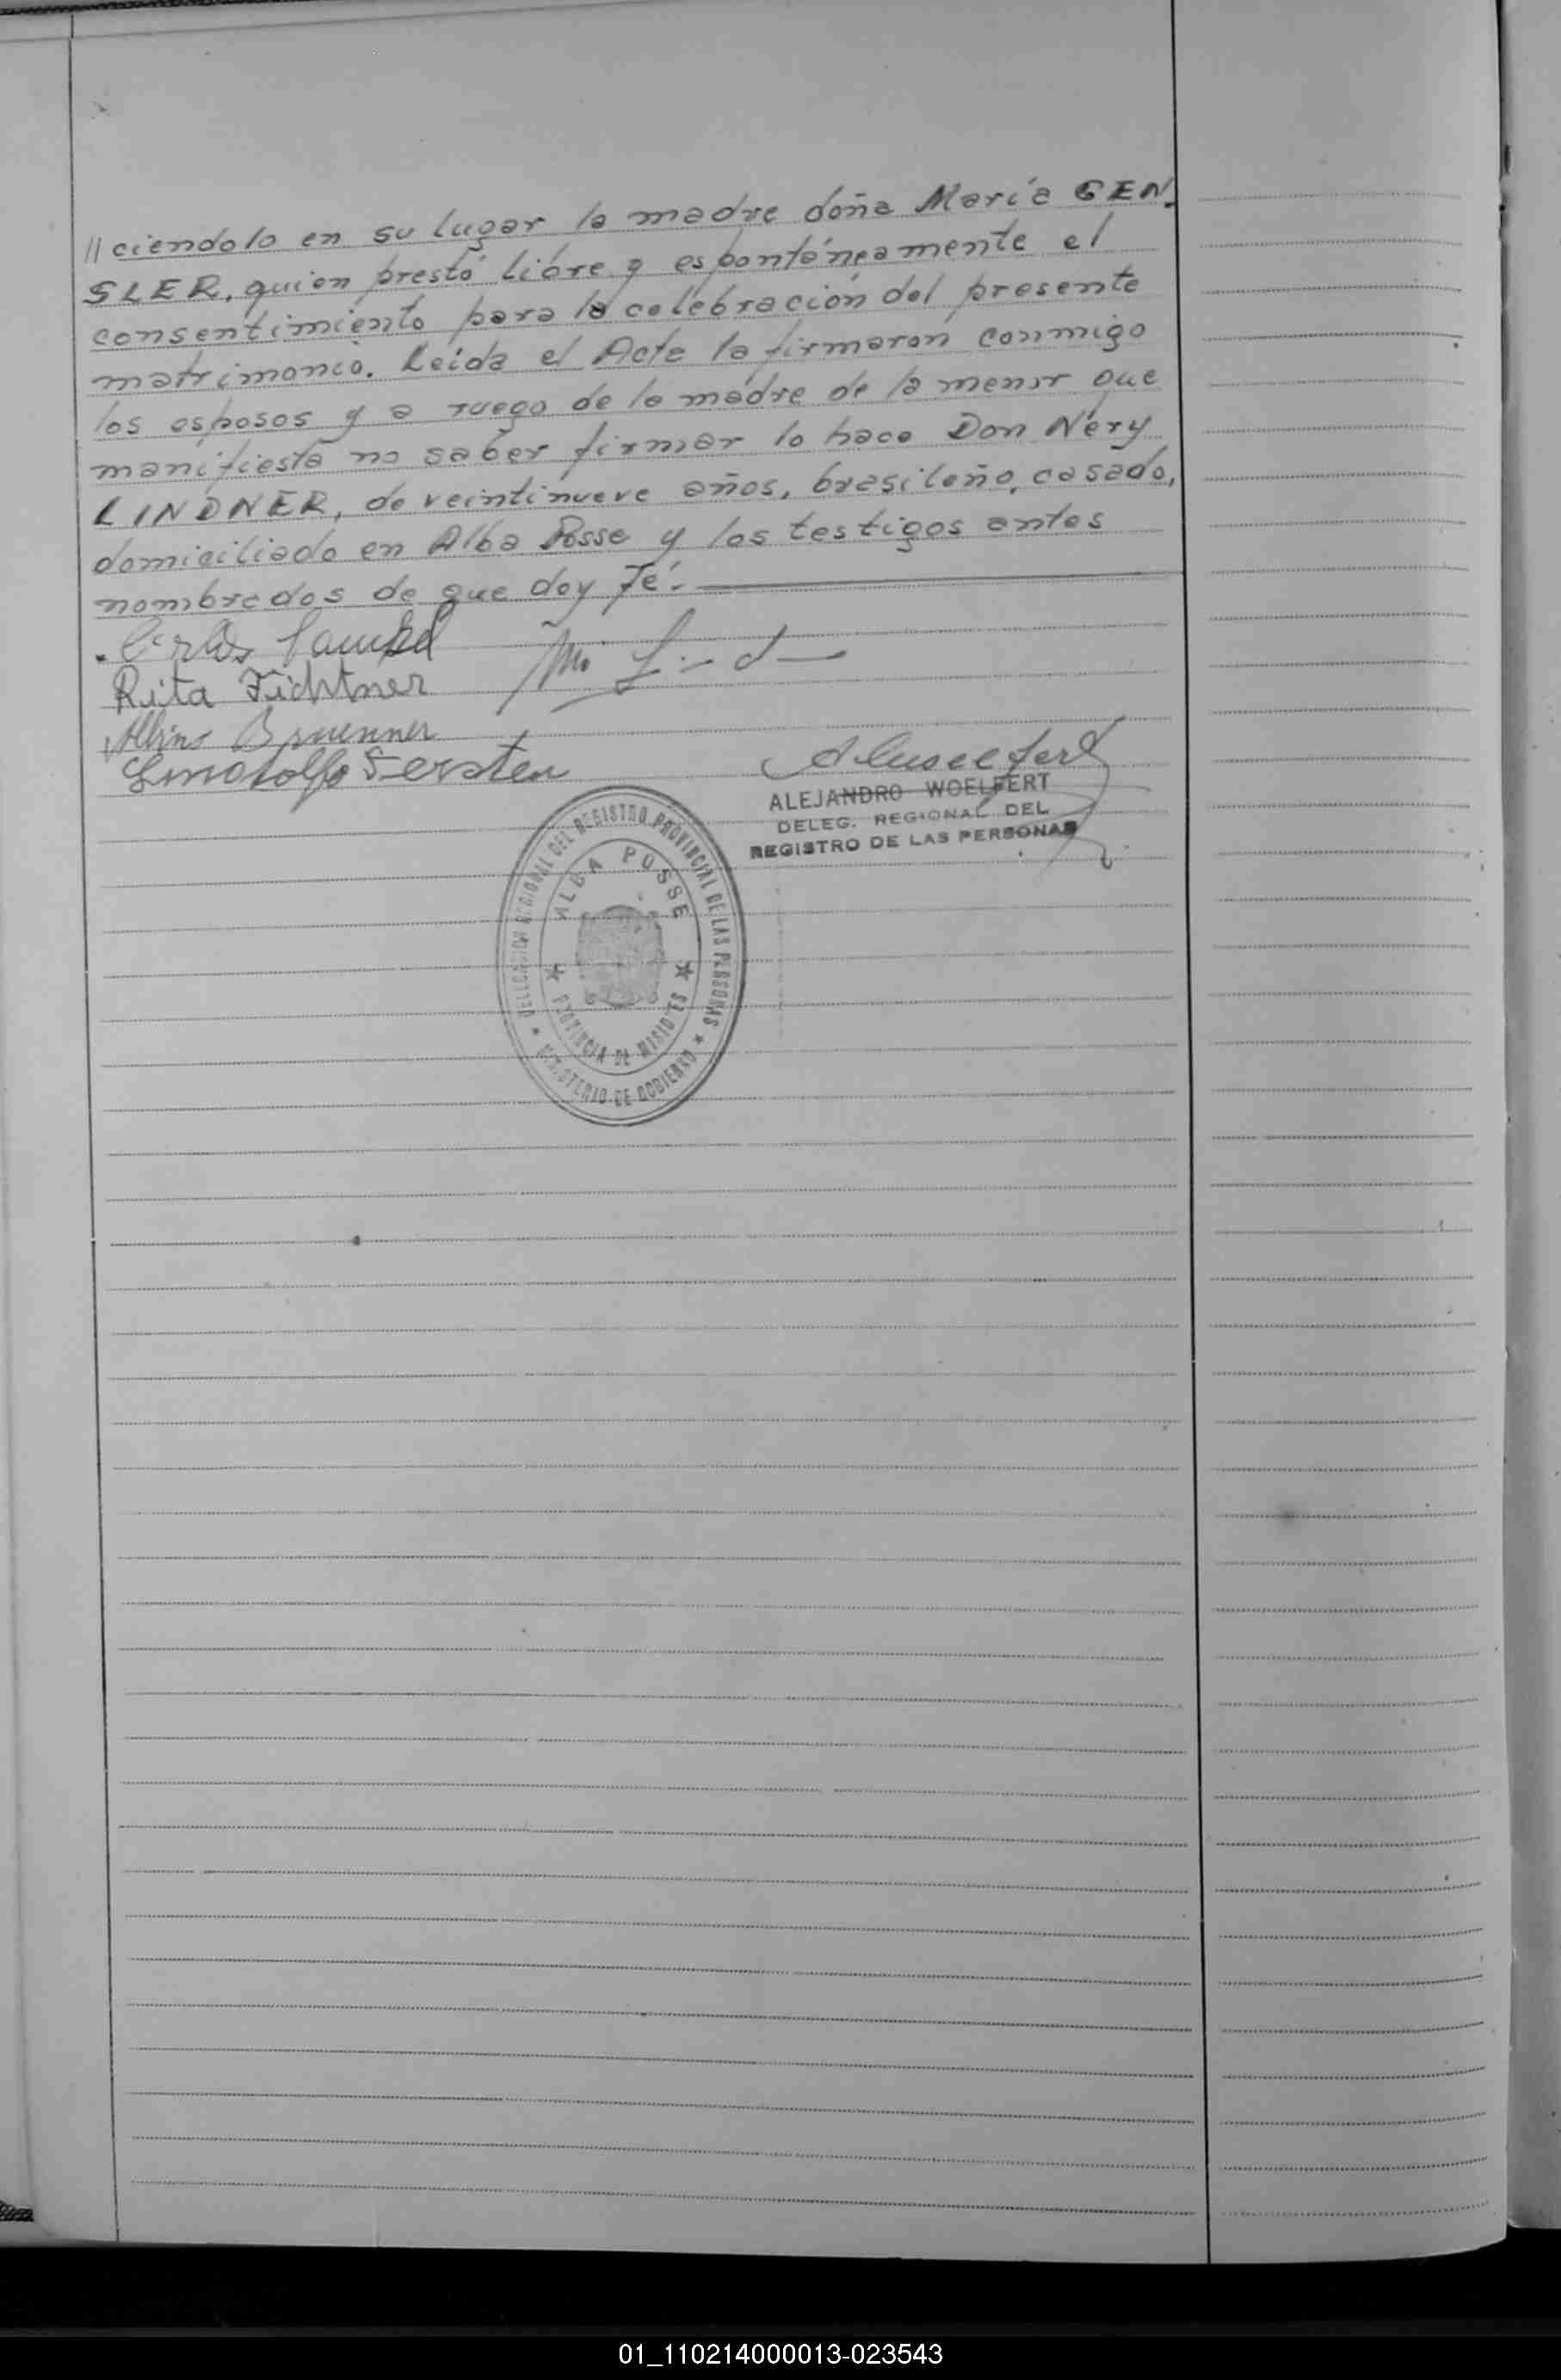 //ciendolo en su lugar la madre doña María GEN-
SLER, quien prestó libre y espontáneamente el
consentimiento para la celebración del presente
matrimonio. Leída el Acta la firmaron conmigo
los esposos y a ruego de la madre de la menor que
manifiesta no saber firmar lo hace Don Nery
LINDNER, de veintinueve años, brasileño, casado,
domiciliado en Alba Posse y los testigos antes
nombrados de que doy Fé.-
Carlos
Rita Fichtner
Albino Brunner
Lindolfo Kersten
ALEJANDRO WOELFERT
DELEG. REGIONAL DEL
REGISTRO DE LAS PERSONAS
DELEGACION REGIONAL DEL REGISTRO PROVINCIAL DE LAS PERSONAS
ALBA POSSE
PROVINCIA DE MISIONES
MINISTERIO DE GOBIERNO
01_110214000013-023543